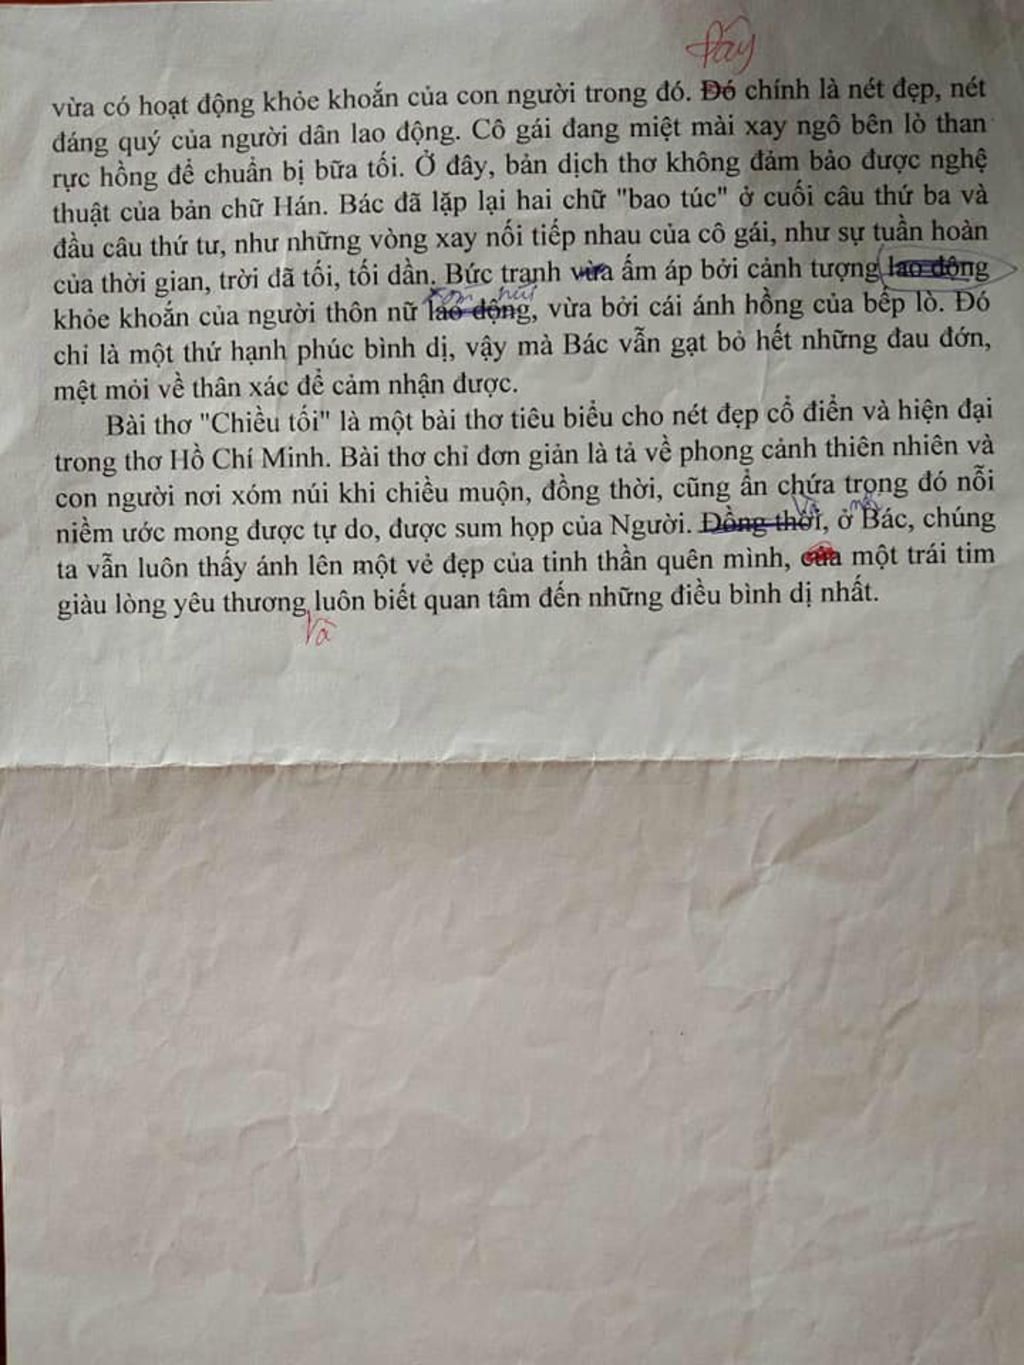 Đây
vừa có hoạt động khỏe khoắn của con người trong đó. Đó chính là nét đẹp, nét
đáng quý của người dân lao động. Cô gái đang miệt mài xay ngô bên lò than
rực hồng để chuẩn bị bữa tối. Ở đây, bản dịch thơ không đảm bảo được nghệ
thuật của bản chữ Hán. Bác đã lặp lại hai chữ "bao túc" ở cuối câu thứ ba và
đầu câu thứ tư, như những vòng xay nối tiếp nhau của cô gái, như sự tuần hoàn
của thời gian, trời đã tối, tối dần. Bức tranh vừa ấm áp bởi cảnh tượng lao động
xóm núi
khỏe khoắn của người thôn nữ lao động, vừa bởi cái ánh hồng của bếp lò. Đó
chỉ là một thứ hạnh phúc bình dị, vậy mà Bác vẫn gạt bỏ hết những đau đớn,
mệt mỏi về thân xác để cảm nhận được.
Bài thơ "Chiều tối" là một bài thơ tiêu biểu cho nét đẹp cổ điển và hiện đại
trong thơ Hồ Chí Minh. Bài thơ chỉ đơn giản là tả về phong cảnh thiên nhiên và
con người nơi xóm núi khi chiều muộn, đồng thời, cũng ẩn chứa trong đó nỗi
Và
niềm ước mong được tự do, được sum họp của Người. Đồng thời, ở Bác, chúng
ta vẫn luôn thấy ánh lên một vẻ đẹp của tinh thần quên mình, của một trái tim
giàu lòng yêu thương luôn biết quan tâm đến những điều bình dị nhất.
Và